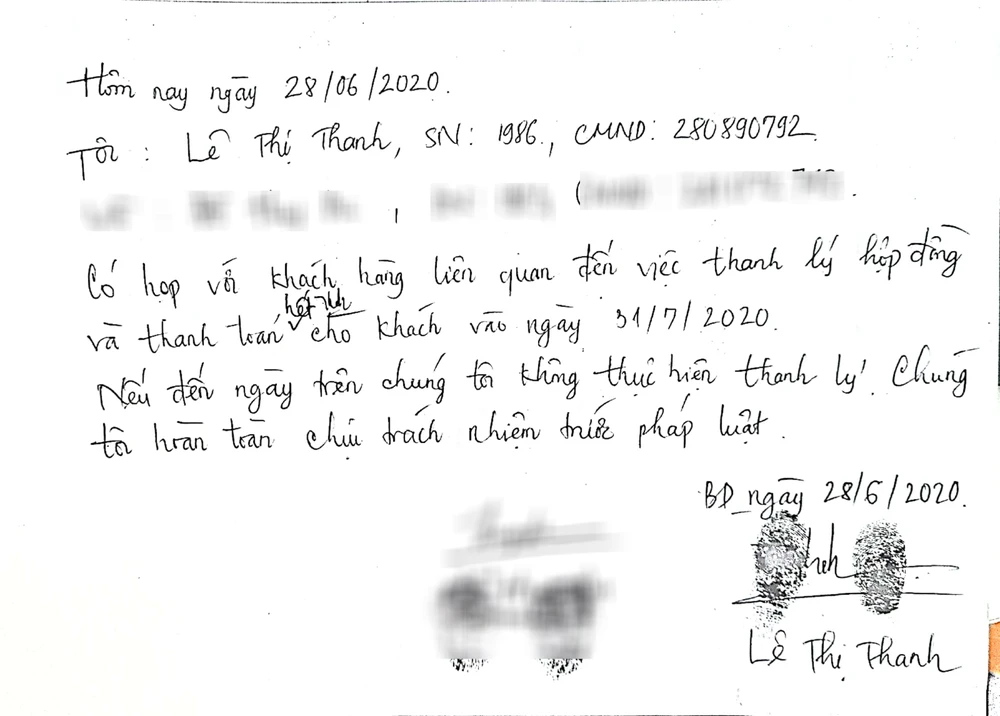 Hôm nay ngày 28/06/2020.
Tôi : Lê Thị Thanh, SN: 1986., CMND: 280890792.
Có họp với khách hàng liên quan đến việc thanh lý hợp đồng
hết tiền
và thanh toán cho khách vào ngày 31/7/2020.
Nếu đến ngày trên chúng tôi không thực hiện thanh lý! Chúng
tôi hoàn toàn chịu trách nhiệm trước pháp luật.
BD_ngày 28/6/2020.
Lê Thị Thanh